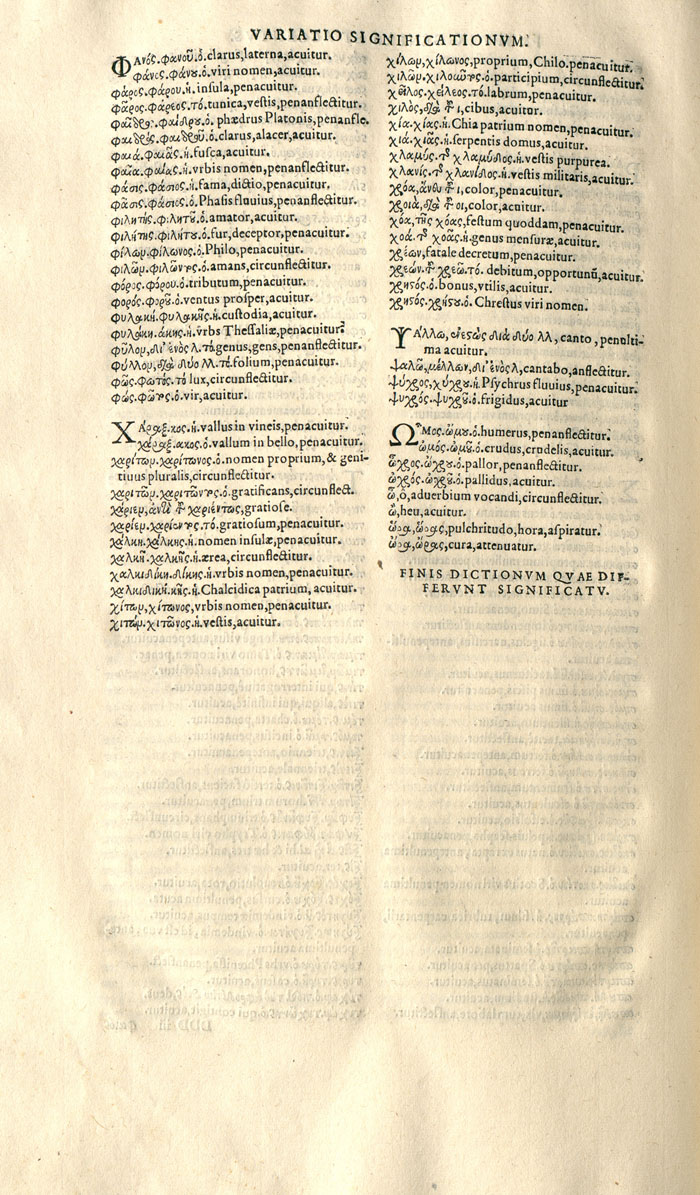 VARIATIO SIGNIFICATIONVM.
ΦΑνός.φανοῦ.ὁ.clarus,laterna,acuitur.
φάνος.φάνου.ὁ.viri nomen,acuitur.
φάρος.φάρου.ἡ.insula,penacuitur.
φᾶρος.φάρεος.τό.tunica,vestis,penanflectitur.
φαῖδρος.φαίδρου.ὁ. phædrus Platonis,penanfle.
φαιδρός.φαιδροῦ.ὁ.clarus,alacer,acuitur.
φαιά.φαιᾶς.ἡ.fusca,acuitur.
φαῖα.φαίας.ἡ.vrbis nomen,penanflectitur.
φάσις.φάσιος.ἡ.fama,dictio,penacuitur.
φᾶσις.φάσιος.ὁ.Phasis fluuius,penanflectitur.
φιλητής.φιλητοῦ.ὁ.amator,acuitur.
φιλήτης.φιλήτου.ὁ.fur,deceptor,penacuitur.
φίλων.φίλωνος.ὁ.Philo,penacuitur.
φιλῶν.φιλοῦντος.ὁ.amans,circunflectitur.
φόρος.φόρου.ὁ.tributum,penacuitur.
φορός.φοροῦ.ὁ.ventus prosper,acuitur.
φυλακή.φυλακῆς.ἡ.custodia,acuitur.
φυλάκη.άκης.ἡ.vrbs Thessaliæ,penacuitur.
φῦλον,δι' ἑνὸς λ.τό.genus,gens,penanflectitur.
φύλλον,διὰ δύο λλ.τό.folium,penacuitur.
φῶς.φωτός.τὸ lux,circunflectitur.
φώς.φωτός.ὁ.vir,acuitur.
ΧΑραξ.κος.ἡ.vallus in vineis,penacuitur.
χάραξ.ακος.ὁ.vallum in bello,penacuitur.
χαρίτων.χαρίτωνος.ὁ.nomen proprium,& geni-
tiuus pluralis,circunflectitur.
χαριτῶν.χαριτῶντος.ὁ.gratificans,circunflect.
χαρίεν,ἀντὶ τοῦ χαριέντως,gratiose.
χαρίεν.χαρίεντος.τό.gratiosum,penacuitur.
χάλκη.χάλκης.ἡ.nomen insulæ,penacuitur.
χαλκῆ.χαλκῆς.ἡ.ærea,circunflectitur.
χαλκιδίκη.δίκης.ἡ.vrbis nomen,penacuitur.
χαλκιδική.κῆς.ἡ.Chalcidica patrium, acuitur.
χίτων,χίτωνος,vrbis nomen,penacuitur.
χιτών.χιτῶνος.ἡ.vestis,acuitur.
χίλων,χίλωνος,proprium,Chilo.penacuitur.
χιλῶν.χιλοῦντος.ὁ.participium,circunflectitur.
χεῖλος.χείλεος.τό.labrum,penacuitur.
χιλός,διὰ τοῦ ι,cibus,acuitur.
χία.χίας.ἡ.Chia patrium nomen,penacuitur.
χιά.χιᾶς.ἡ.serpentis domus,acuitur.
χλαμύς.τῆς χλαμύδος.ἡ.vestis purpurea.
χλανίς.τῆς χλανίδος.ἡ.vestis militaris,acuitur.
χρόα,ἄνευ τοῦ ι,color,penacuitur.
χροιά,διὰ τοῦ οι,color,acuitur.
χόα,τῆς χόας,festum quoddam,penacuitur.
χοά.τῆς χοᾶς.ἡ.genus mensuræ,acuitur.
χρέων,fatale decretum,penacuitur.
χρεών.τοῦ χρεώ.τό. debitum,opportunũ,acuitur.
χρηστός.ὁ.bonus,vtilis,acuitur.
χρῆστος.χρήστου.ὁ.Chrestus viri nomen.
ΨΑλλω,ἐνεστὼς διὰ δύο λλ, canto, penulti-
ma acuitur.
ψαλῶ,μέλλων,δι'ἑνὸς λ,cantabo,anflectitur.
ψύχρος,ψύχρου.ἡ.Psychrus fluuius,penacuitur.
ψυχρός.ψυχροῦ.ὁ.frigidus,acuitur
ΩΜος.ὤμου.ὁ.humerus,penanflectitur.
ὠμός.ὠμοῦ.ὁ.crudus,crudelis,acuitur.
ὦχρος.ὤχρου.ὁ.pallor,penanflectitur.
ὠχρός.ὠχροῦ.ὁ.pallidus,acuitur.
ὦ,ὁ,aduerbium vocandi,circunflectitur.
ὤ,heu,acuitur.
ὥρα,ὥρας,pulchritudo,hora,aspiratur.
ὤρα,ὤρας,cura,attenuatur.
FINIS DICTIONVM QVAE DIF-
FERVNT SIGNIFICATV.